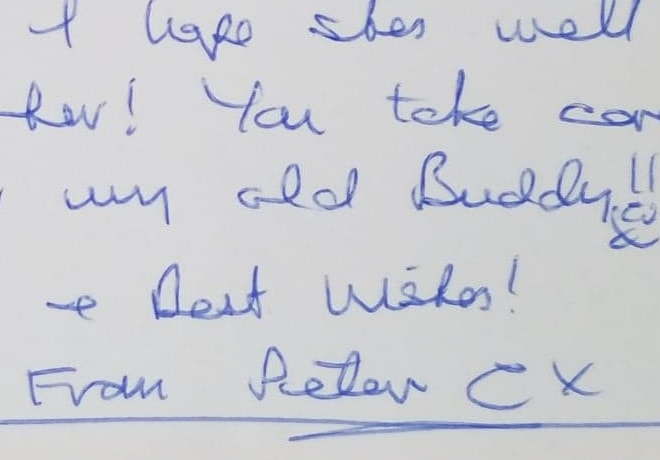 I hope shes well
her! You take car
my old Buddy!!
+e Best Wishes!
From Pieter C X